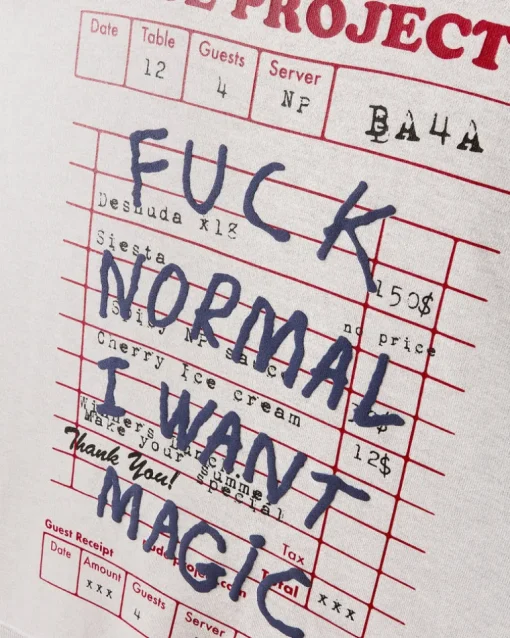 PROJECT
Date Table Guests Server
12 4 NP BA4A
FUCK
Desnuda x18 150$
Siesta no price
NORMAL
Spicy NP sauce
Cherry Ice cream 12$
I WANT
Winners Lunch:
Make your summe
special
Thank You!
MAGIC
Tax
Guest Receipt Total xxx
Date Amount Guests Server
xxx 4